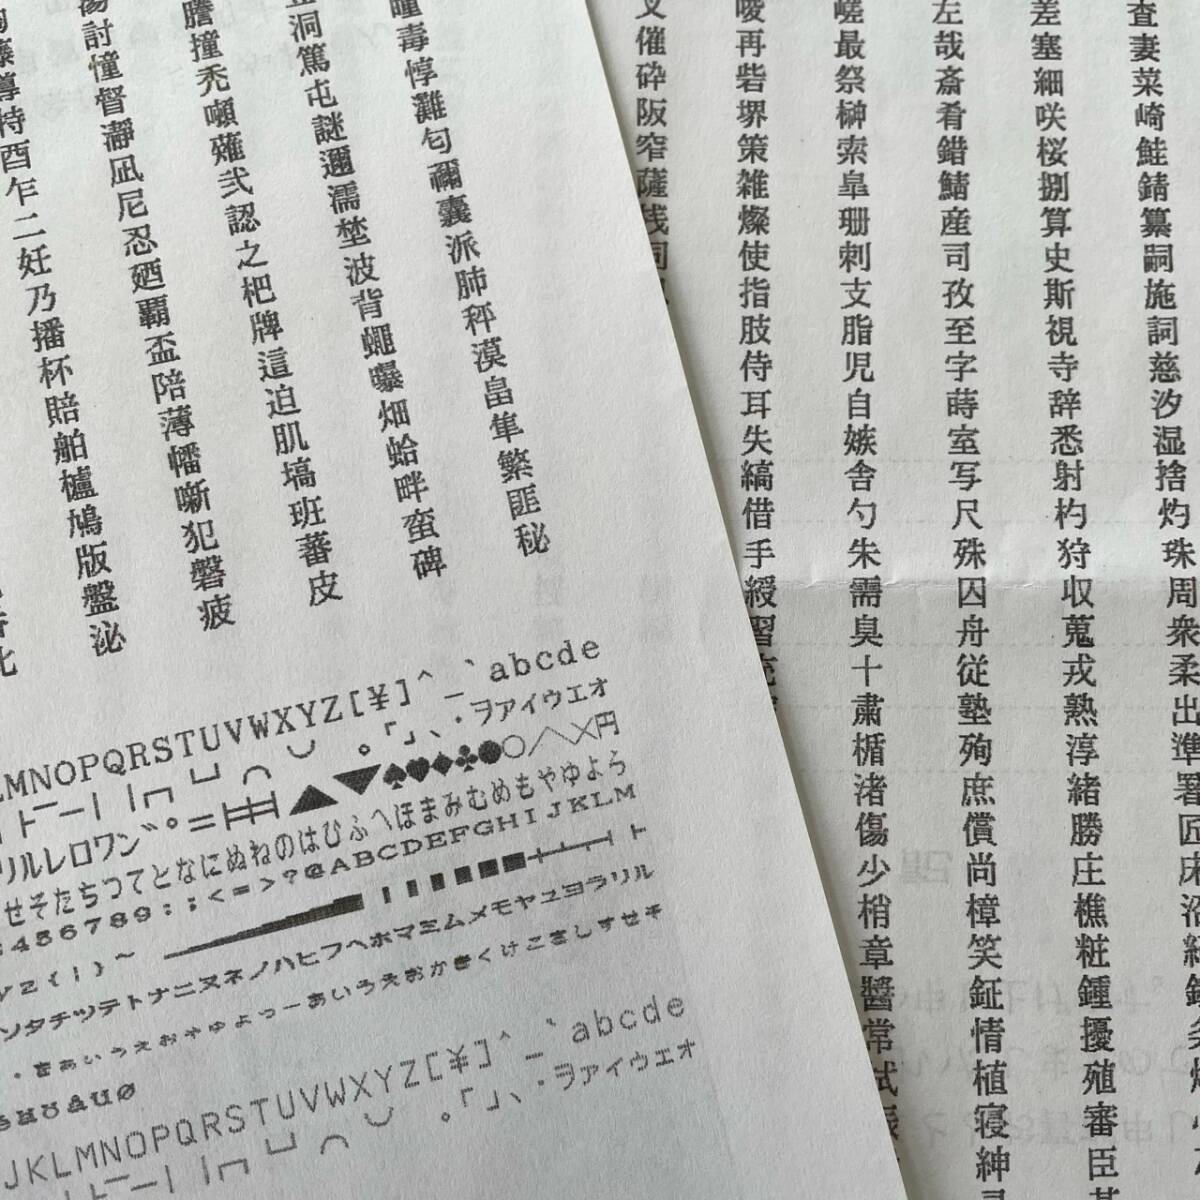 藤討謄
導憧撞洞瞳
特督禿篤毒
酉瀞噸屯惇
乍凪薙謎灘
二尼弐邇匂
妊忍認濡禰
乃廼之埜囊
播覇杷波派
杯盃牌背肺
賠陪這蠅秤
舶薄迫曝漠
櫨幡肌畑畠
鳩噺塙蛤隼
版犯班畔繁
盤磐蕃蛮匪
泌疲皮碑秘
LMNOPQRSTUVWXYZ[¥]^_`abcde
。「」、・ヲァィゥェォ
◢◥♠♥♦♣●○╱╲╳円
リルレロワン゛゜=
せそたちつてとなにぬねのはひふへほまみむめもやゆよら
3456789:;<=>?@ABCDEFGHIJKLM
YZ{|}~
ソタチツテトナニヌネノハヒフヘホマミムメモヤユヨラリル
・をぁぃぅぇぉゃゅょっーあいうえおかきくけこさしすせそ
JKLMNOPQRSTUVWXYZ[¥]^_`abcde
。「」、・ヲァィゥェォ
叉唆嵯左差査
催再最哉塞妻
砕砦祭斎細菜
阪堺榊肴咲崎
窄策索錯桜鮭
薩雑皐鯖捌錆
桟燦珊産算纂
伺使刺司史嗣
指支孜斯施
肢脂至視詞
侍児字寺慈
耳自蒔辞汐
失嫉室悉湿
縞舎写射捨
借勺尺杓灼
手朱殊狩珠
綬需囚収周
習臭舟蒐衆
充十従戎柔
粛塾熟出
楯殉淳準
渚庶緒署
傷償勝匠
少尚庄床
梢樟樵沼
章笑粧紹
醬鉦鍾
常情擾
拭植殖
寝審
紳臣